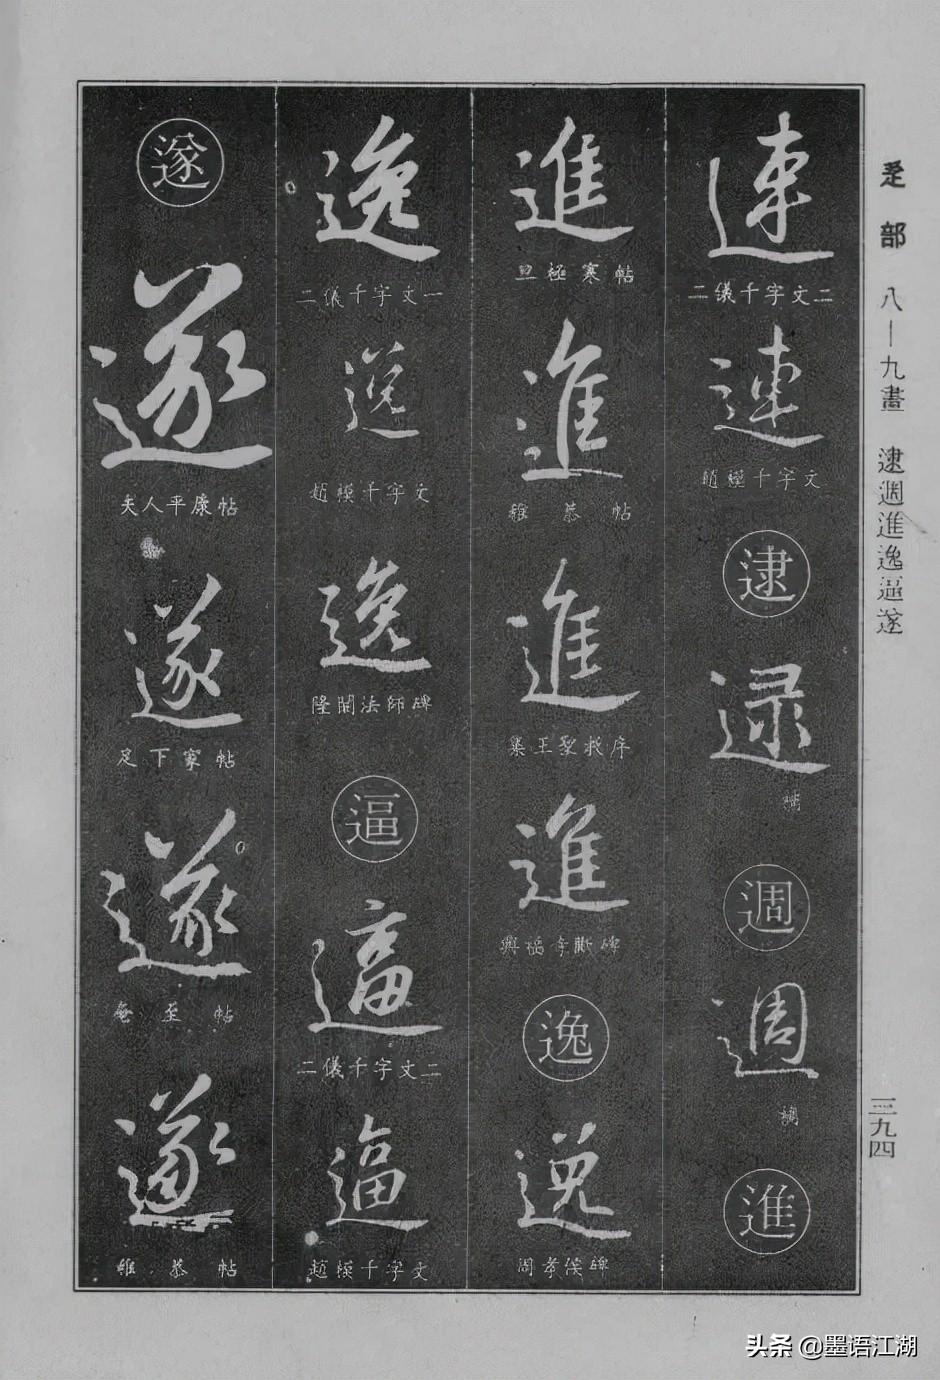 辵部 八—九畫 逮週進逸逼遂
三九四
連
二儀千字文二
連
趙模千字文
逮
逮
週
週
進
進
旦極寒帖
進
雅恭帖
進
集王聖教序
進
興福寺斷碑
逸
逸
周孝侯碑
逸
二儀千字文一
逸
趙模千字文
逸
隆闡法師碑
逼
逼
二儀千字文二
逼
趙模千字文
遂
遂
夫人平康帖
遂
足下家帖
遂
奄至帖
遂
雅恭帖
头条 @墨语江湖